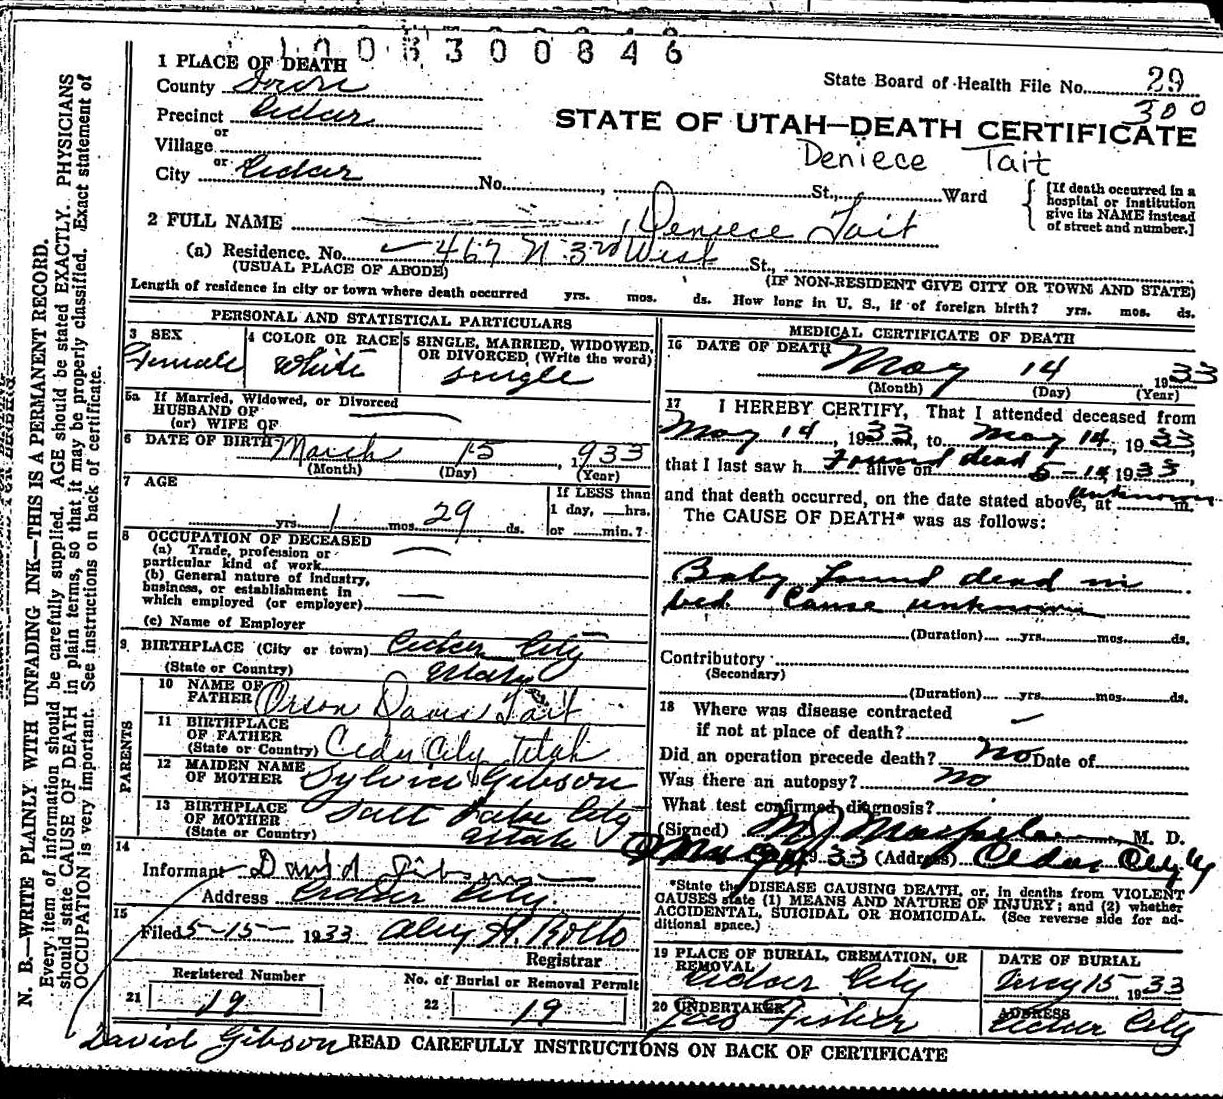 1003300846
1 PLACE OF DEATH
State Board of Health File No. 29
County Iron
300
Precinct Cedar
STATE OF UTAH—DEATH CERTIFICATE
or
Village
Deniece Tait
or
City Cedar No. , St., Ward
[If death occurred in a
hospital or institution
give its NAME instead
of street and number.]
2 FULL NAME Deniece Tait
(a) Residence. No. 467 N 3rd West St.,
(USUAL PLACE OF ABODE) (IF NON-RESIDENT GIVE CITY OR TOWN AND STATE)
Length of residence in city or town where death occurred yrs. mos. ds. How long in U. S., if of foreign birth? yrs. mos. ds.
PERSONAL AND STATISTICAL PARTICULARS
3 SEX
Female
4 COLOR OR RACE
White
5 SINGLE, MARRIED, WIDOWED,
OR DIVORCED (Write the word)
single
5a If Married, Widowed, or Divorced
HUSBAND OF
(or) WIFE OF
6 DATE OF BIRTH March 15, 1933
(Month) (Day) (Year)
7 AGE
yrs. 1 mos. 29 ds.
If LESS than
1 day, hrs.
or min.?
8 OCCUPATION OF DECEASED
(a) Trade, profession or
particular kind of work
(b) General nature of industry,
business, or establishment in
which employed (or employer)
(c) Name of Employer
9 BIRTHPLACE (City or town) Cedar City
(State or Country) Utah
PARENTS
10 NAME OF
FATHER Orson Davis Tait
11 BIRTHPLACE
OF FATHER
(State or Country) Cedar City Utah
12 MAIDEN NAME
OF MOTHER Sylvia Gibson
13 BIRTHPLACE
OF MOTHER Salt Lake City
(State or Country) Utah
14
Informant David Gibson
Address Cedar City
15
Filed 5-15- 1933
Registrar
Registered Number
21 19
No. of Burial or Removal Permit
22 19
MEDICAL CERTIFICATE OF DEATH
16 DATE OF DEATH May 14, 1933
(Month) (Day) (Year)
17 I HEREBY CERTIFY, That I attended deceased from
May 14, 1933, to May 14, 1933
that I last saw h Found dead alive on 5-14, 1933,
and that death occurred, on the date stated above, at unknown m.
The CAUSE OF DEATH* was as follows:
Baby found dead in
bed. Cause unknown
(Duration) yrs. mos. ds.
Contributory
(Secondary)
(Duration) yrs. mos. ds.
18 Where was disease contracted
if not at place of death?
Did an operation precede death? No Date of
Was there an autopsy? No
What test confirmed diagnosis?
(Signed) M. D.
33 (Address) Cedar City
*State the DISEASE CAUSING DEATH, or, in deaths from VIOLENT
CAUSES state (1) MEANS AND NATURE OF INJURY; and (2) whether
ACCIDENTAL, SUICIDAL OR HOMICIDAL. (See reverse side for ad-
ditional space.)
19 PLACE OF BURIAL, CREMATION, OR
REMOVAL
Cedar City
DATE OF BURIAL
May 15 1933
20 UNDERTAKER
Fisher
ADDRESS
Cedar City
David Gibson READ CAREFULLY INSTRUCTIONS ON BACK OF CERTIFICATE
N. B.—WRITE PLAINLY WITH UNFADING INK—THIS IS A PERMANENT RECORD.
Every item of information should be carefully supplied. AGE should be stated EXACTLY. PHYSICIANS
should state CAUSE OF DEATH in plain terms, so that it may be properly classified. Exact statement of
OCCUPATION is very important. See instructions on back of certificate.